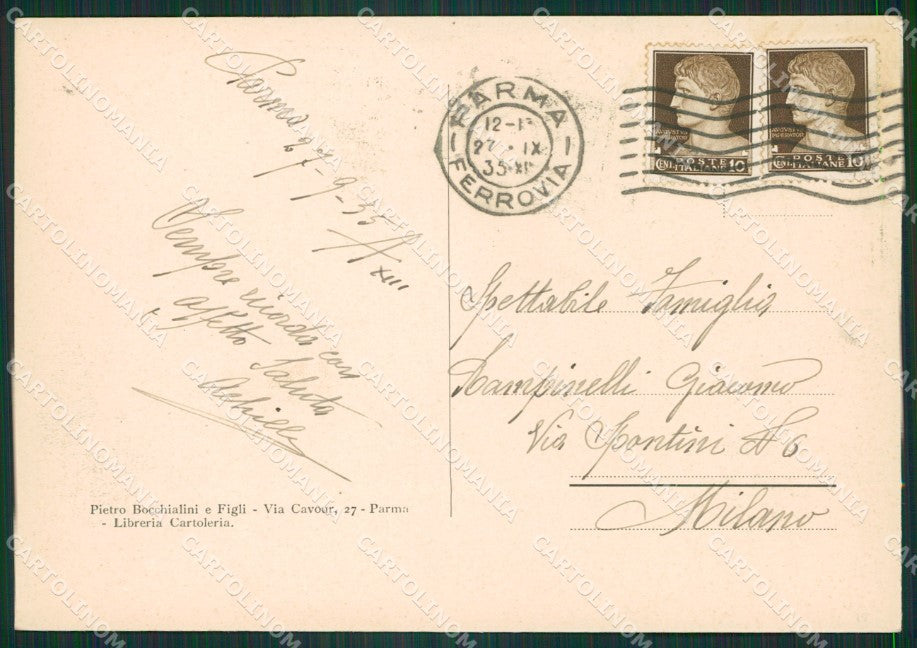 Parma 27-9-35 A XIII
Sempre ricorda con
affetto Saluta
Achille
Pietro Bocchialini e Figli - Via Cavour, 27 - Parma
- Libreria Cartoleria.
PARMA
12-13
27 · IX
35·XIII
FERROVIA
AVGVSTVS
IMPERATOR
POSTE
CENT. ITALIANE 10
POSTE
CENT. ITALIANE 10
Spettabile Famiglia
Rampinelli Giacomo
Via Pontini N 6
Milano
CARTOLINOMANIA